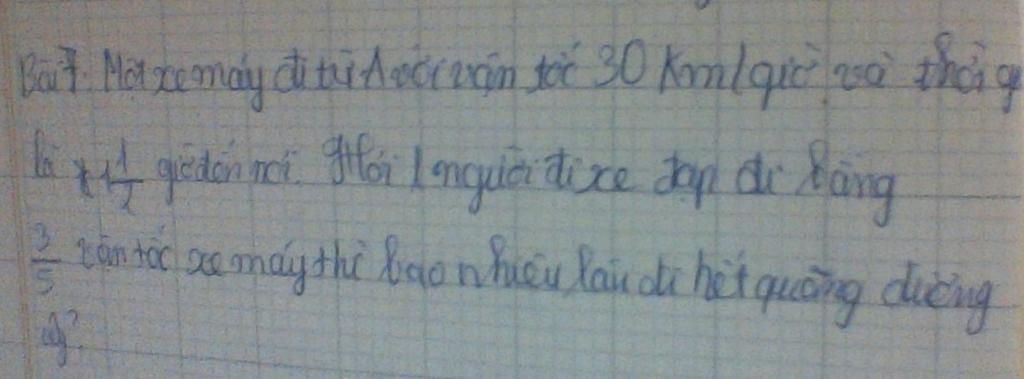 Bài 7. Một xe máy đi từ A với vận tốc 30 Km/giờ và thời g
là 1 1/2 giờ đến nơi. Hỏi 1 người đi xe đạp đi bằng
3/5 vận tốc xe máy thì bao nhiêu lâu đi hết quãng đường
ấy?